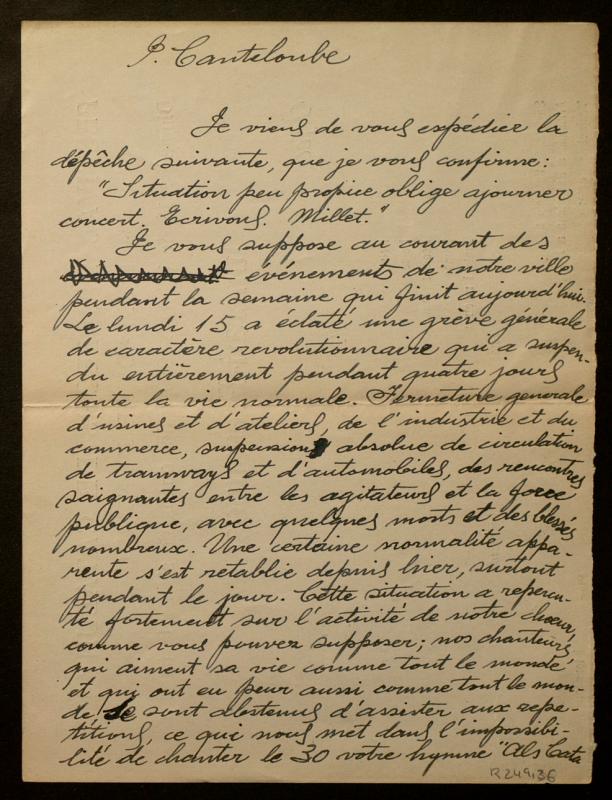 J. Canteloube
Je viens de vous expédier la
dépêche suivante, que je vous confirme:
"Situation peu propice oblige ajourner
concert. Ecrivons. Millet."
Je vous suppose au courant des
événements de notre ville
pendant la semaine qui finit aujourd'hui.
Le lundi 15 a éclaté une grève générale
de caractère revolutionnaire qui a suspen-
du entièrement pendant quatre jours
toute la vie normale. Fermeture generale
d'usines et d'ateliers, de l'industrie et du
commerce, suspension absolue de circulation
de tramways et d'automobiles, des rencontres
saignantes entre les agitateurs et la force
publique, avec quelques morts et des blessés
nombreux. Une certaine normalité appa-
rente s'est retablie depuis hier, surtout
pendant le jour. Cette situation a repercu-
té fortement sur l'activité de notre choeur,
comme vous pouvez supposer; nos chanteurs,
qui aiment sa vie comme tout le monde
et qui ont eu peur aussi comme tout le mon-
de, se sont abstenus d'assister aux repe-
titions, ce qui nous met dans l'impossibi-
lité de chanter le 30 votre hymne "Als Cata
R249,36